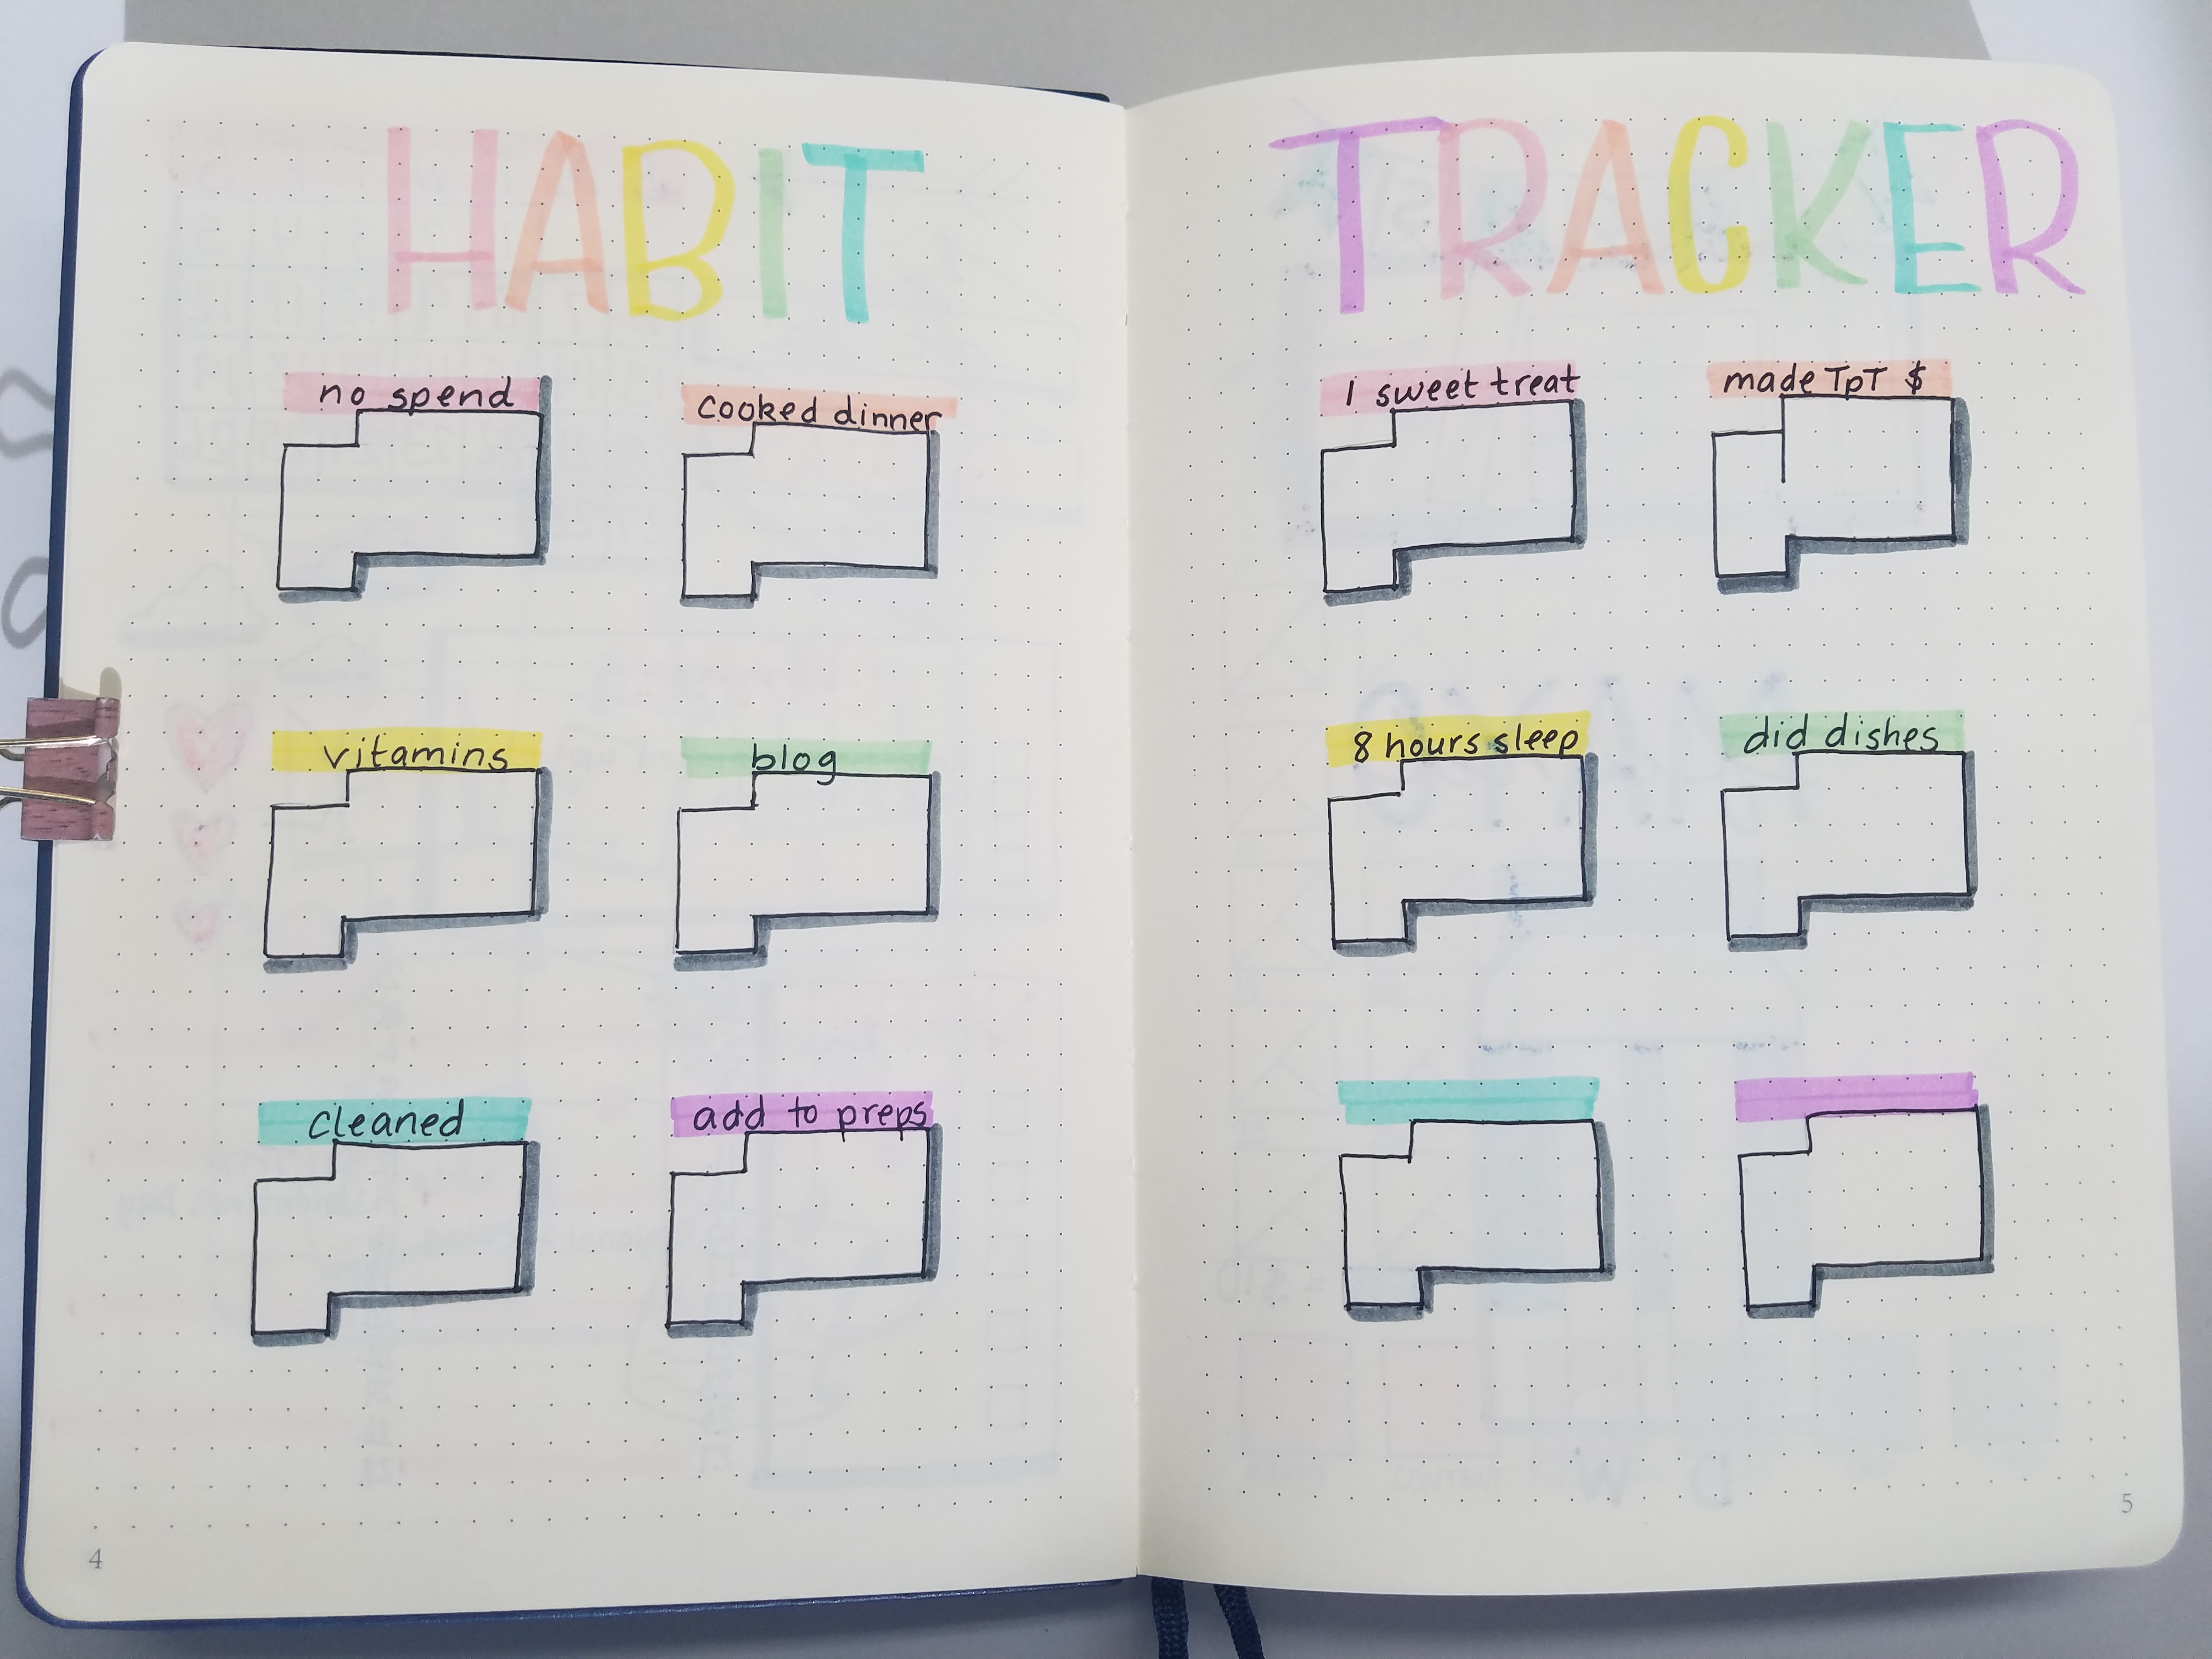 HABIT
no spend
cooked dinner
vitamins
blog
cleaned
add to preps
4
TRACKER
1 sweet treat
made TpT $
8 hours sleep
did dishes
5